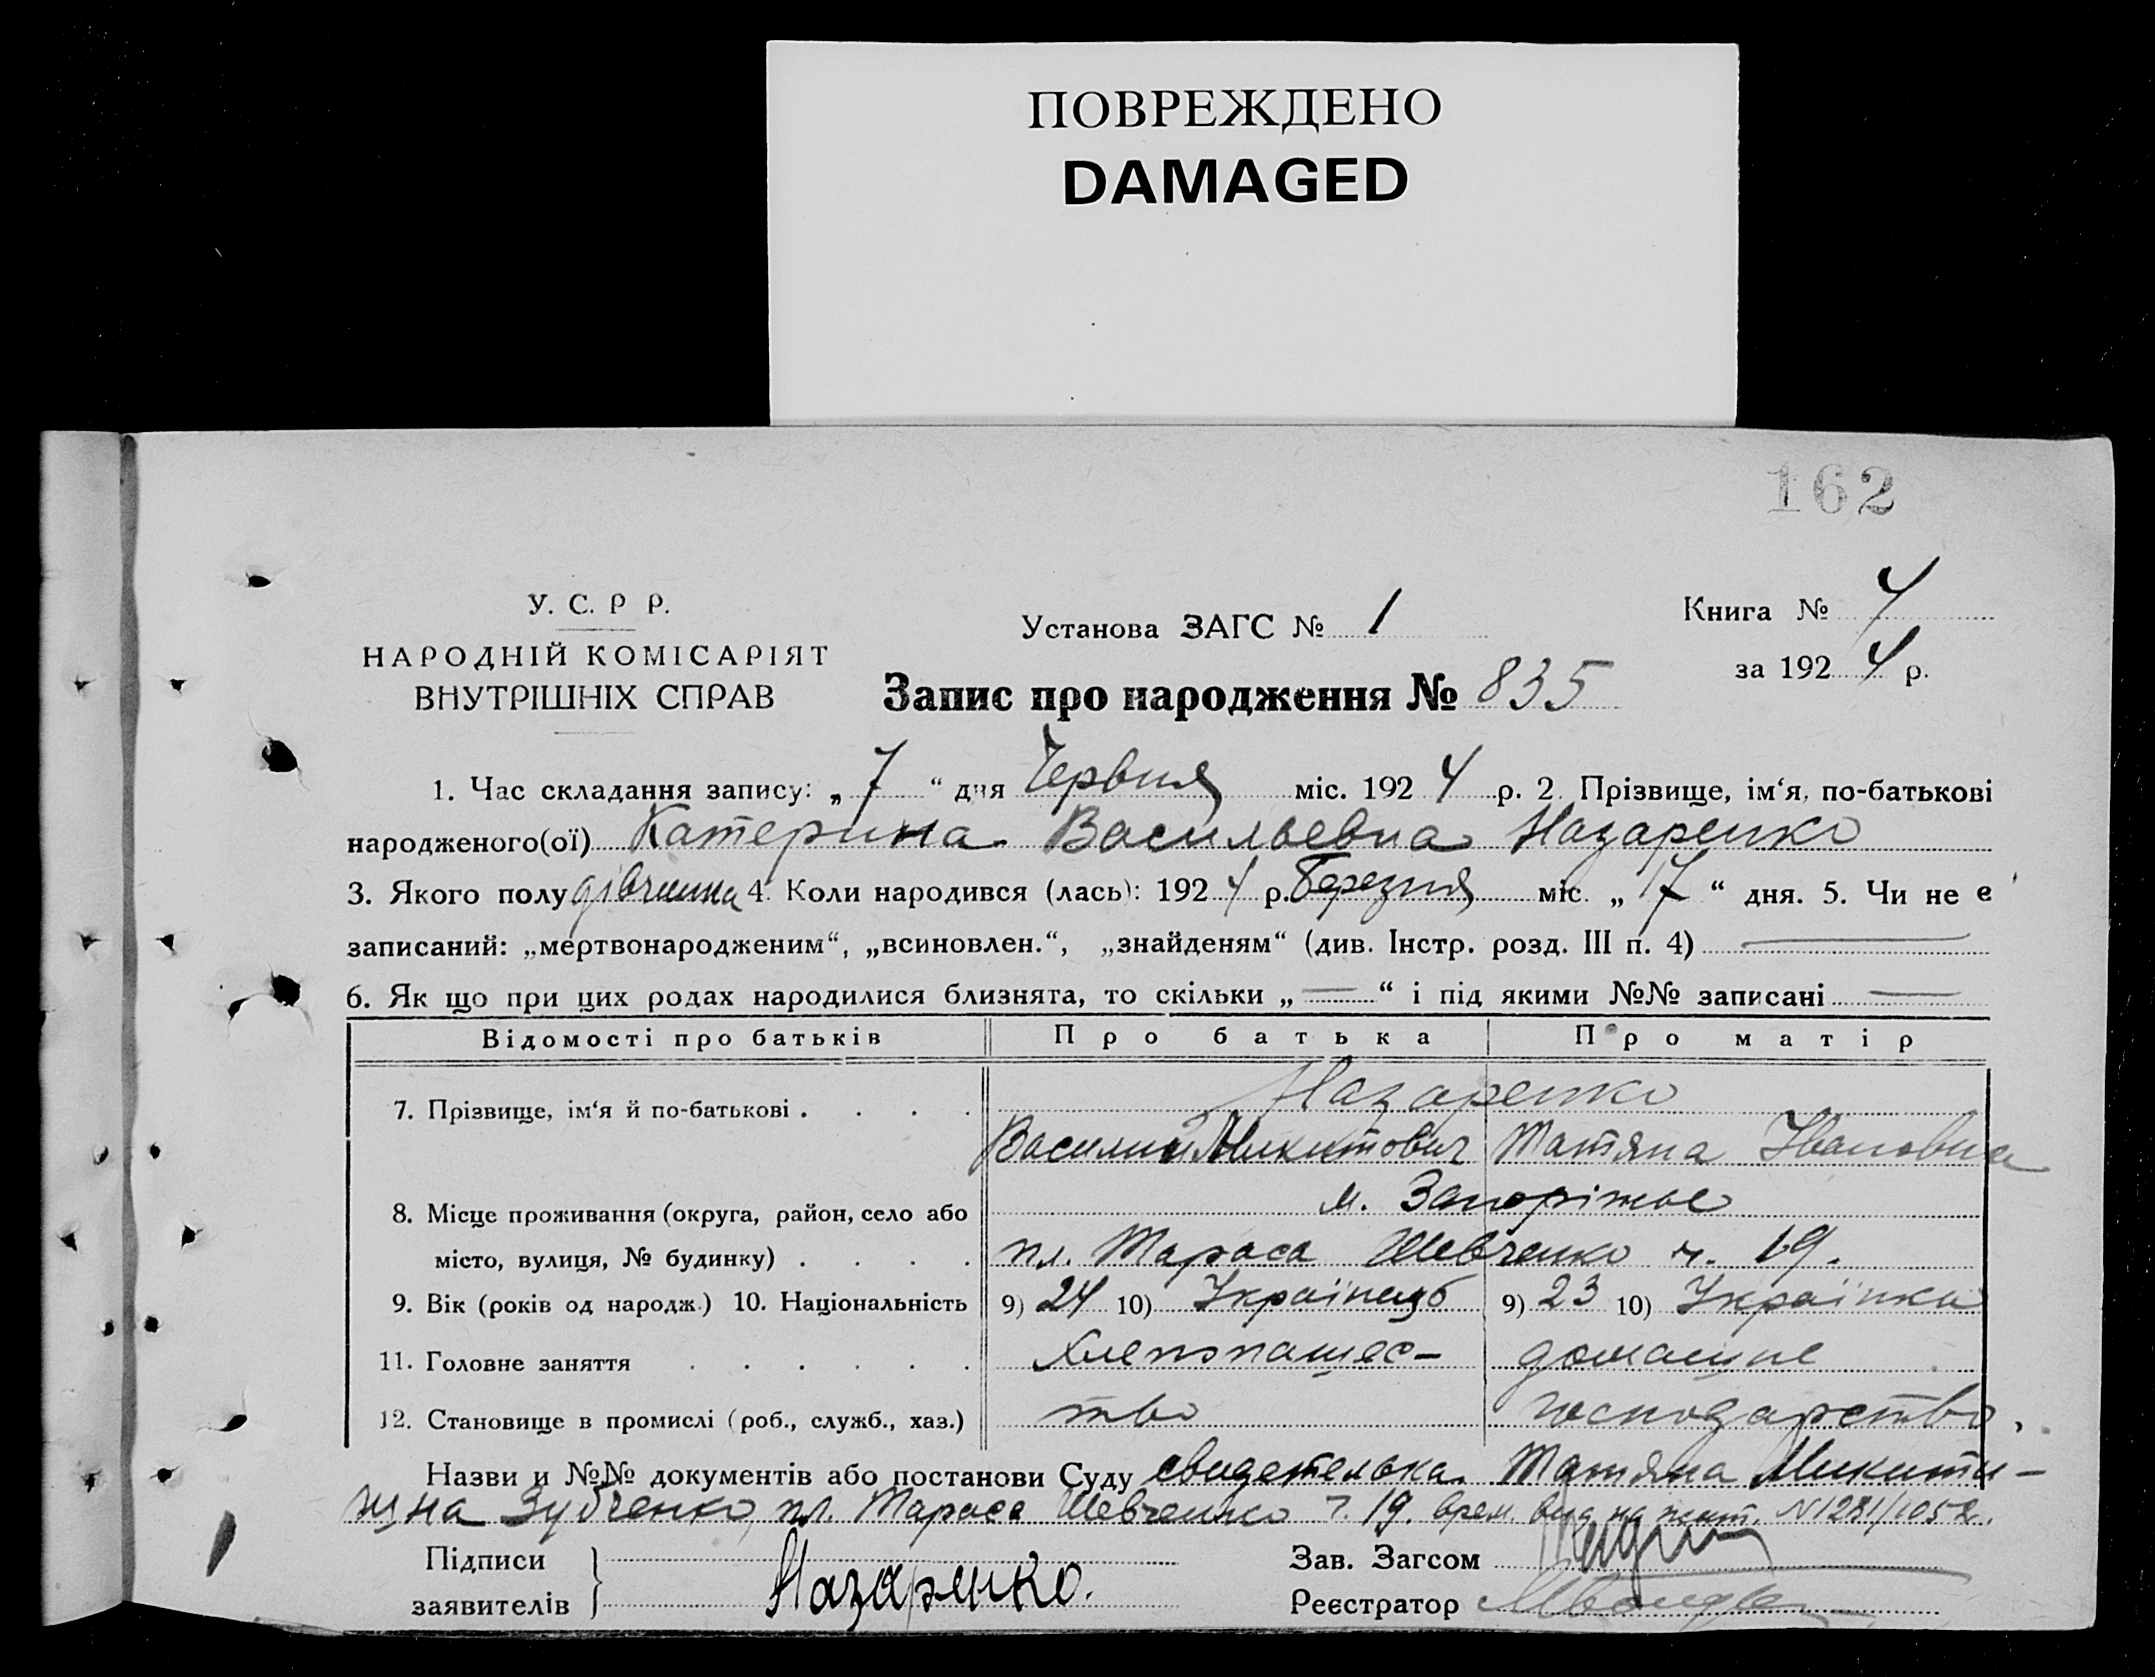 ПОВРЕЖДЕНО
DAMAGED
162
У. С. Р Р.
НАРОДНІЙ КОМІСАРІЯТ
ВНУТРІШНІХ СПРАВ
Установа ЗАГС № 1
Книга № 4
за 192 4 р.
Запис про народження № 835
1. Час складання запису: „ 7 “ дня Червня міс. 192 4 р. 2. Прізвище, ім‘я, по-батькові
народженого(ої) Катерина Васильевна Назаренко
3. Якого полу дівчина 4. Коли народився (лась): 192 4 р. Березня міс. „ 17 “ дня. 5. Чи не є
записаний: „мертвонародженим“, „всиновлен.“, „знайденям“ (див. Інстр. розд. III п. 4) —
6. Як що при цих родах народилися близнята, то скільки „ — “ і під якими №№ записані —
Відомості про батьків Про батька Про матір
7. Прізвище, ім‘я й по-батькові . . . . Назаренко
Василий Микитович Татяна Івановна
8. Місце проживання (округа, район, село або м. Запоріжье
місто, вулиця, № будинку) . . . . пл. Тараса Шевченко ч. 19.
9. Вік (років од народж.) 10. Національність 9) 24 10) Українець 9) 23 10) Українка
11. Головне заняття . . . . . . Хлепопашес- домашне
12. Становище в промислі (роб., служб., хаз.) тво господарство,
Назви и №№ документів або постанови Суду свидетелька Татяна Микити-
шна Зубченко, пл. Тараса Шевченко ч. 19. врем. вид на жит. N 1281/1052.
Підписи
заявителів
Назаренко.
Зав. Загсом
Реєстратор